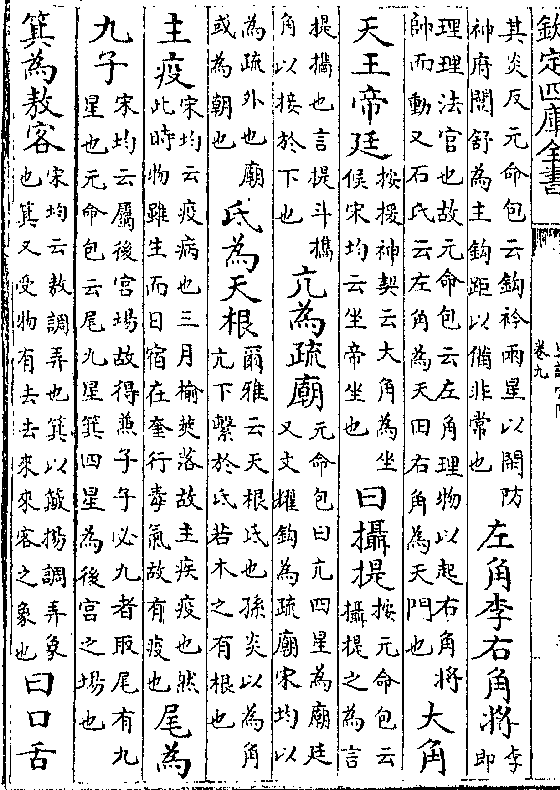 欽定四庫全書
卷九
其炎反元命包云鈎衿兩星以閑防神府闓舒為主鈎距以備非常也左角李右角將李即
理理法官也故元命包云左角理物以起右角將帥而動又石氏云左角為天田右角為天門也大角
天王帝廷按援神契云大角為坐候宋均云坐帝坐也曰攝提按元命包云攝提之為言
提攜也言提斗攜角以接於下也亢為疏廟元命包曰亢四星為廟廷又文耀鈎為疏廟宋均以
為疏外也廟或為朝也氐為天根爾雅云天根氐也孫炎以為角亢下繫於氐若木之有根也
主疫宋均云疫病也三月榆莢落故主疾疫也然此時物雖生而日宿在奎行毒氣故有疫也尾為
九子宋均云屬後宮場故得兼子子必九者取尾有九星也元命包云尾九星箕四星為後宮之場也
箕為敖客宋均云敖調弄也箕以簸揚調弄象也箕又受物有去去來來客之象也曰口舌